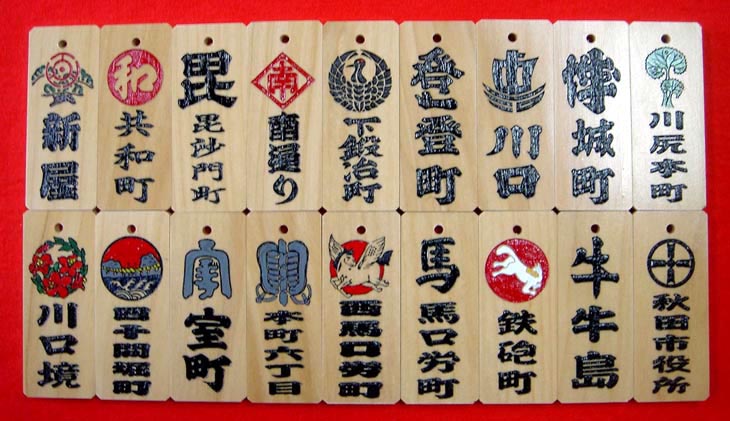 新屋
和
共和町
毘
毘沙門町
南
南通り
下鍛冶町
登町
川口
城町
川尻本町
川口境
四十間堀町
室町
本町六丁目
西馬口労町
馬
馬口労町
鉄砲町
牛
牛島
秋田市役所